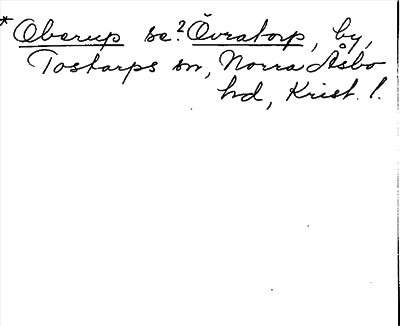 *Oberup se ? Övratorp, by,
Tostarps sn, Norra Åsbo
hd, Krist. l.